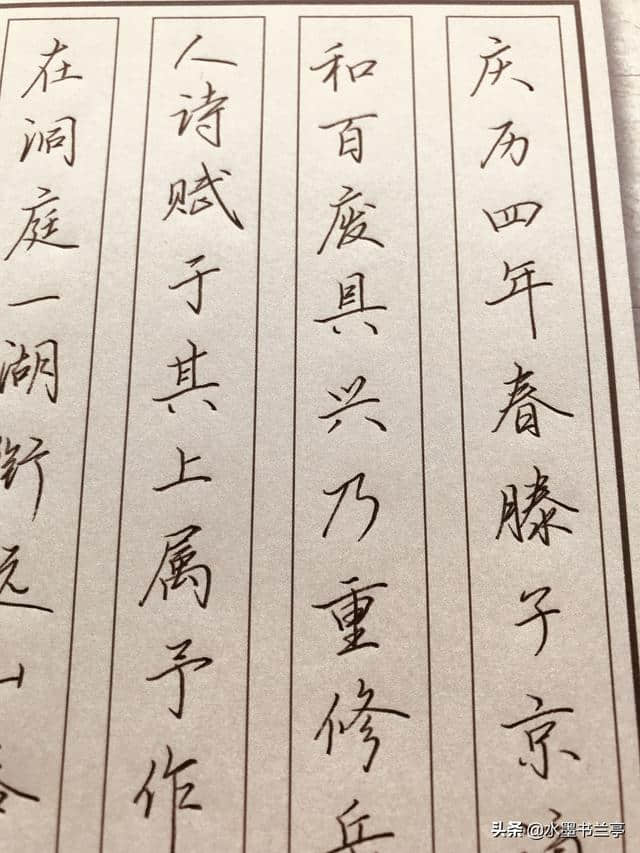 庆历四年春滕子京谪
和百废具兴乃重修岳
人诗赋于其上属予作
在洞庭一湖衔远山吞
头条@水墨书兰亭